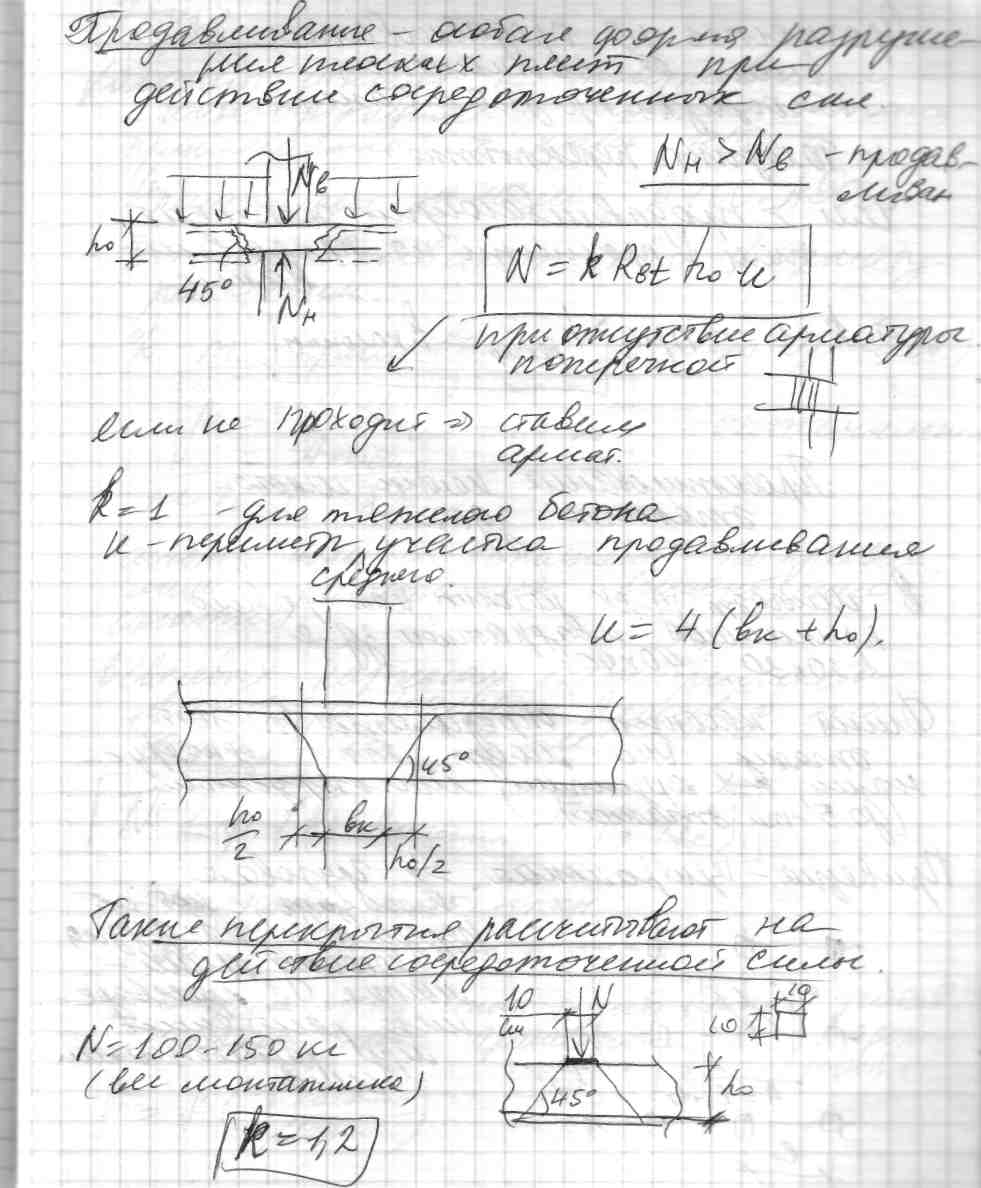 Продавливание - особая форма разруше-
ния плоских плит при
действии сосредоточенных сил.
Nн > Nв - продав-
ливан
Nв
h₀
45°
Nн
N = k Rbt h₀ u
при отсутствие арматуры
поперечной
если не проходит ⇒ ставим
армат.
k=1 - для тяжелого бетона
u - периметр участка продавливания
среднего.
u = 4 (вк + h₀).
45°
h₀/2
вк
h₀/2
Такие перекрытия рассчитывают на
действие сосредоточенной силы.
10
см
N
10
10
N=100-150 кг
(вес монтажника)
45°
h₀
k=1,2